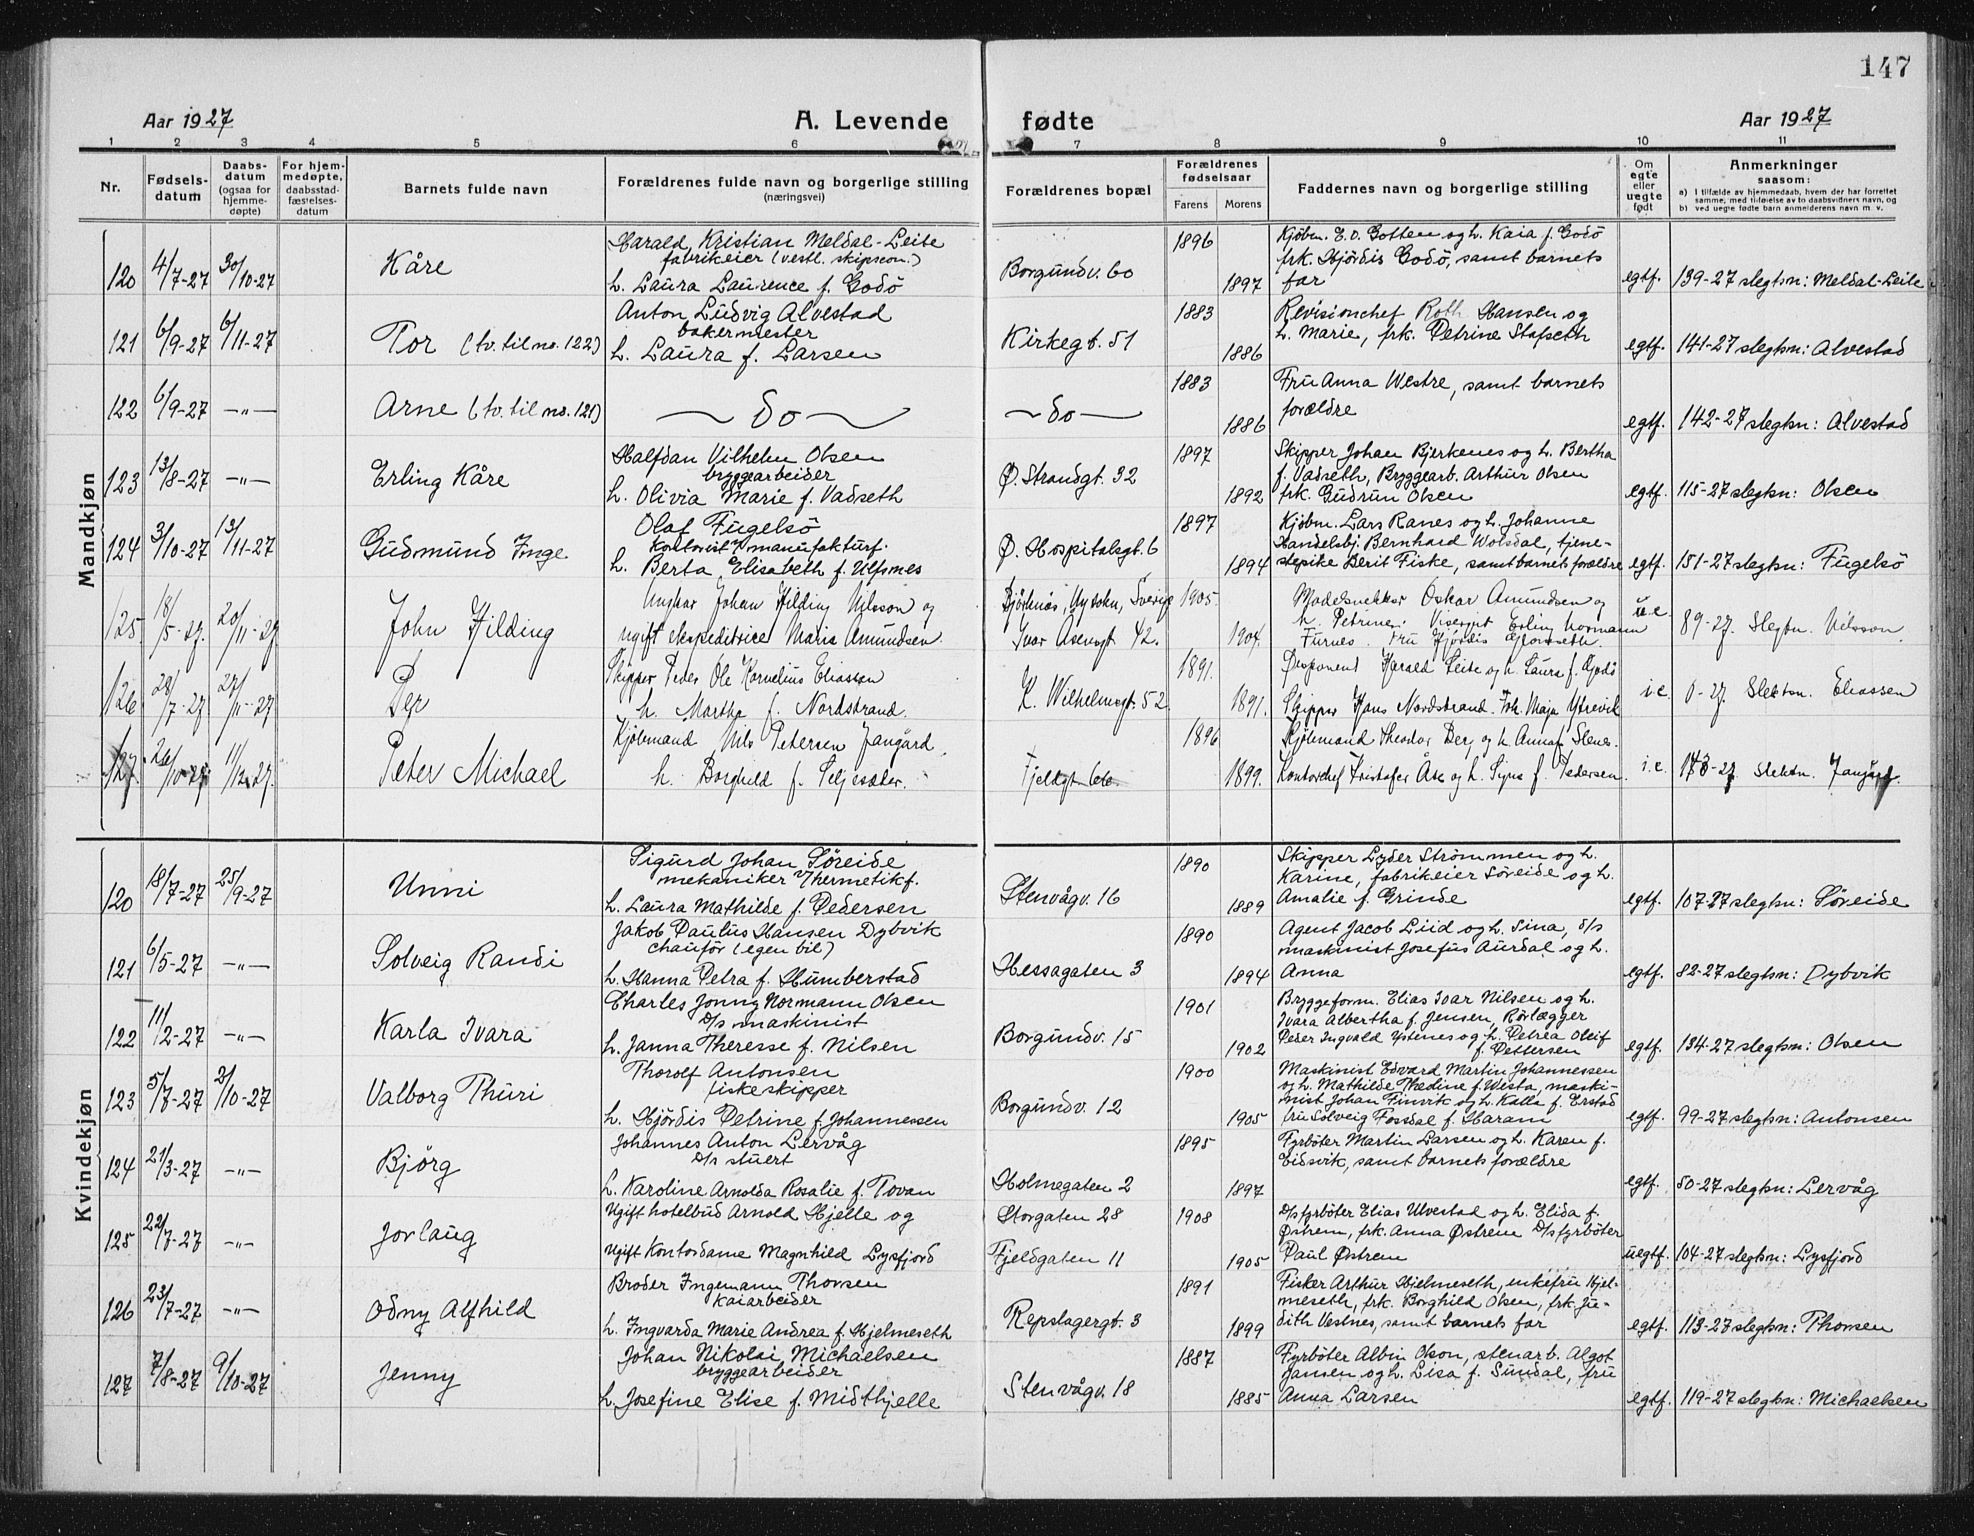 147
Aar 1927 A. Levende fødte Aar 1927
1 2 3 4 5 6 7 8 9 10 11
Nr. Fødsels-datum Daabs-datum (ogsaa for hjemme-døpte) For hjem-medøpte, daabsstad-fæstelses-datum Barnets fulde navn Forældrenes fulde navn og borgerlige stilling (næringsvei) Forældrenes bopæl Forældrenes fødselsaar Farens Morens Faddernes navn og borgerlige stilling Om egte eller uegte født Anmerkninger saasom:
a) I tilfælde av hjemmedaab, hvem der har forrettet samme, med tilføielse av to daabsvidners navn, og
b) ved uegte fødte barn anmelderens navn m. v.
Mandkjøn
Harald Kristian Meldal-Leite 1896 Kjøbm. E.O. Gotten og h. Kaia f. Godö
fabrikeier (vestl. skipseon.) frk. Hjördis Godö, samt barnets
120 4/7-27 30/10-27 Kåre h. Laura Laurence f. Godö Borgundv. 60 1897 far egtf. 139-27 slegtsn: Meldal-Leite
Anton Ludvig Alvestad 1883 Revisionchef Roth Hansen og
bakermester
121 6/9-27 6/11-27 Tor (tv. til no. 122) h. Laura f. Larsen Kirkegt. 51 1886 h. Marie, frk. Petrine Stafseth egtf. 141-27 slegtsn: Alvestad
1883 Fru Anna Westre, samt barnets
122 6/9-27 -"- Arne (tv. til no. 121) do do 1886 forældre egtf. 142-27 slegtsn: Alvestad
Halfdan Vilhelm Olsen 1897 Skipper Johan Bjerkenes og h. Bertha
bryggearbeider f. Vadseth, Bryggearb. Arthur Olsen
123 13/8-27 -"- Erling Kåre h. Olivia Marie f. Vadseth Ø. Strandgt. 32 1892 frk. Gudrun Olsen egtf. 115-27 slegtsn: Olsen
Olaf Fugelsö 1897 Kjøbm. Lars Ranes og h. Johanne
Kontorist v/ manufakturf. Handelsbj. Bernhard Wolsdal, tjene-
124 3/10-27 13/11-27 Gudmund Inge h. Berta Elisabeth f. Ulfsnes Ø. Hospitalsgt. 6 1894 stepike Berit Fiske, samt barnets forældre egtf. 151-27 slegtsn: Fugelsö
Ungkar Johan Hilding Nilsson og Sverige 1905. Modelsnekker Oskar Amundsen og
h. Petrine. Visergut Erling Normann
125. 18/5-27. 20/11-27 John Hilding ugift ekspeditrice Maria Amundsen. Ivar Asensgt 42. 1904. Furnes. Fru Hjørdis u.e. 89-27. Slegtn. Nilsson.
Skipper Peder Ole Kornelius Eliassen 1891. Disponent Harald Leite og h. Laura f. Godö
126 28/7-27 27/11-27 Per h. Martha f. Nordstrand. K. Wilhelmsgt. 52 1891. Skipper Hans Nordstrand. Frk. Maja Ytrevik i.e. -27. Slektsn. Eliassen
Kjøbmand Nils Petersen Jangård. 1896 Kjøbmand Theodor Berg og h. Anna f. Stenes.
127. 26/10-27 11/12-27. Peter Michael h. Borghild f. Seljesæter. Fjeldgt. 66. 1899. Kontorchef Kristofer Åse og h. Signe f. Pedersen. i.e. 143-27. Slektsn. Jangård.
Kvindekjøn
Sigurd Johan Søreide 1890 Skipper Lyder Strømmen og h.
mekaniker v/ hermetikf. Karine, fabrikeier Søreide og h.
120 18/7-27 25/9-27 Unni h. Laura Mathilde f. Pedersen Stenvågv. 16 1889 Amalie f. Grinde egtf. 107-27 slegtsn: Søreide
Jakob Paulus Hansen Dybvik 1890 Agent Jacob Liid og h. Sina, d/s
chaufør (egen bil) maskinist Josefus Aurdal og h.
121 6/5-27 -"- Solveig Randi h. Hanna Petra f. Humberstad Hessagaten 3 1894 Anna egtf. 82-27 slegtsn: Dybvik
Charles Jonny Normann Olsen 1901 Bryggeform. Elias Ivar Nilsen og h.
D/s maskinist Ivara Albertha f. Jensen, Rørlægger
122 11/2-27 -"- Karla Ivara h. Janna Therese f. Nilsen Borgundv. 15 1902 Peder Ingvald Ystenes og h. Petrea Oleif f. Pettersen egtf. 134-27 slegtsn: Olsen
Thorolf Antonsen 1900 Maskinist Edvard Martin Johannessen
fiskeskipper og h. Mathilde Thedine f. Wista, maski-
nist Johan Finvik og h. Kalla f. Erstad
123 5/7-27 2/10-27 Valborg Thuri h. Hjördis Petrine f. Johannessen Borgundv. 12 1905 fru Solveig Fossdal f. Haram egtf. 99-27 slegtsn: Antonsen
Johannes Anton Lervåg 1895 Fyrböter Martin Larsen og h. Karen f.
D/s stuert Eidsvik, samt barnets forældre
124 21/3-27 -"- Björg h. Karoline Arnolda Rosalie f. Tovan Holmegaten 2 1897 egtf. 50-27 slegtsn: Lervåg
Ugift hotelbud Arnold Hjelle og Storgaten 28 1908 D/s fyrböter Elias Ulvestad og h. Elida f.
Østrem, frk. Anna Østrem D/s fyrböter
125 22/7-27 -"- Jorlaug Ugift Kontordame Magnhild Lysfjord Fjeldgaten 11 1905 Paul Østrem uegtf. 104-27 slegtsn: Lysfjord
Broder Ingemann Thorsen 1891 Fisker Arthur Hjelmeseth, enkefru Hjel-
kaiarbeider meseth, frk. Borghild Olsen, frk. Ju-
126 23/7-27 -"- Odny Alfhild h. Ingvarda Marie Andrea f. Hjelmeseth Repslagergt. 3 1899 dith Vestnes, samt barnets far egtf. 113-27 slegtsn: Thorsen
Johan Nikolai Michaelsen 1887 Fyrböter Albin Olson, stenarb. Algot
bryggearbeider Jansen og h. Lisa f. Sundal, fru
127 7/8-27 9/10-27 Jenny h. Josefine Elise f. Midthjelle Stenvågv. 18 1885 Anna Larsen egtf. 119-27 slegtsn: Michaelsen